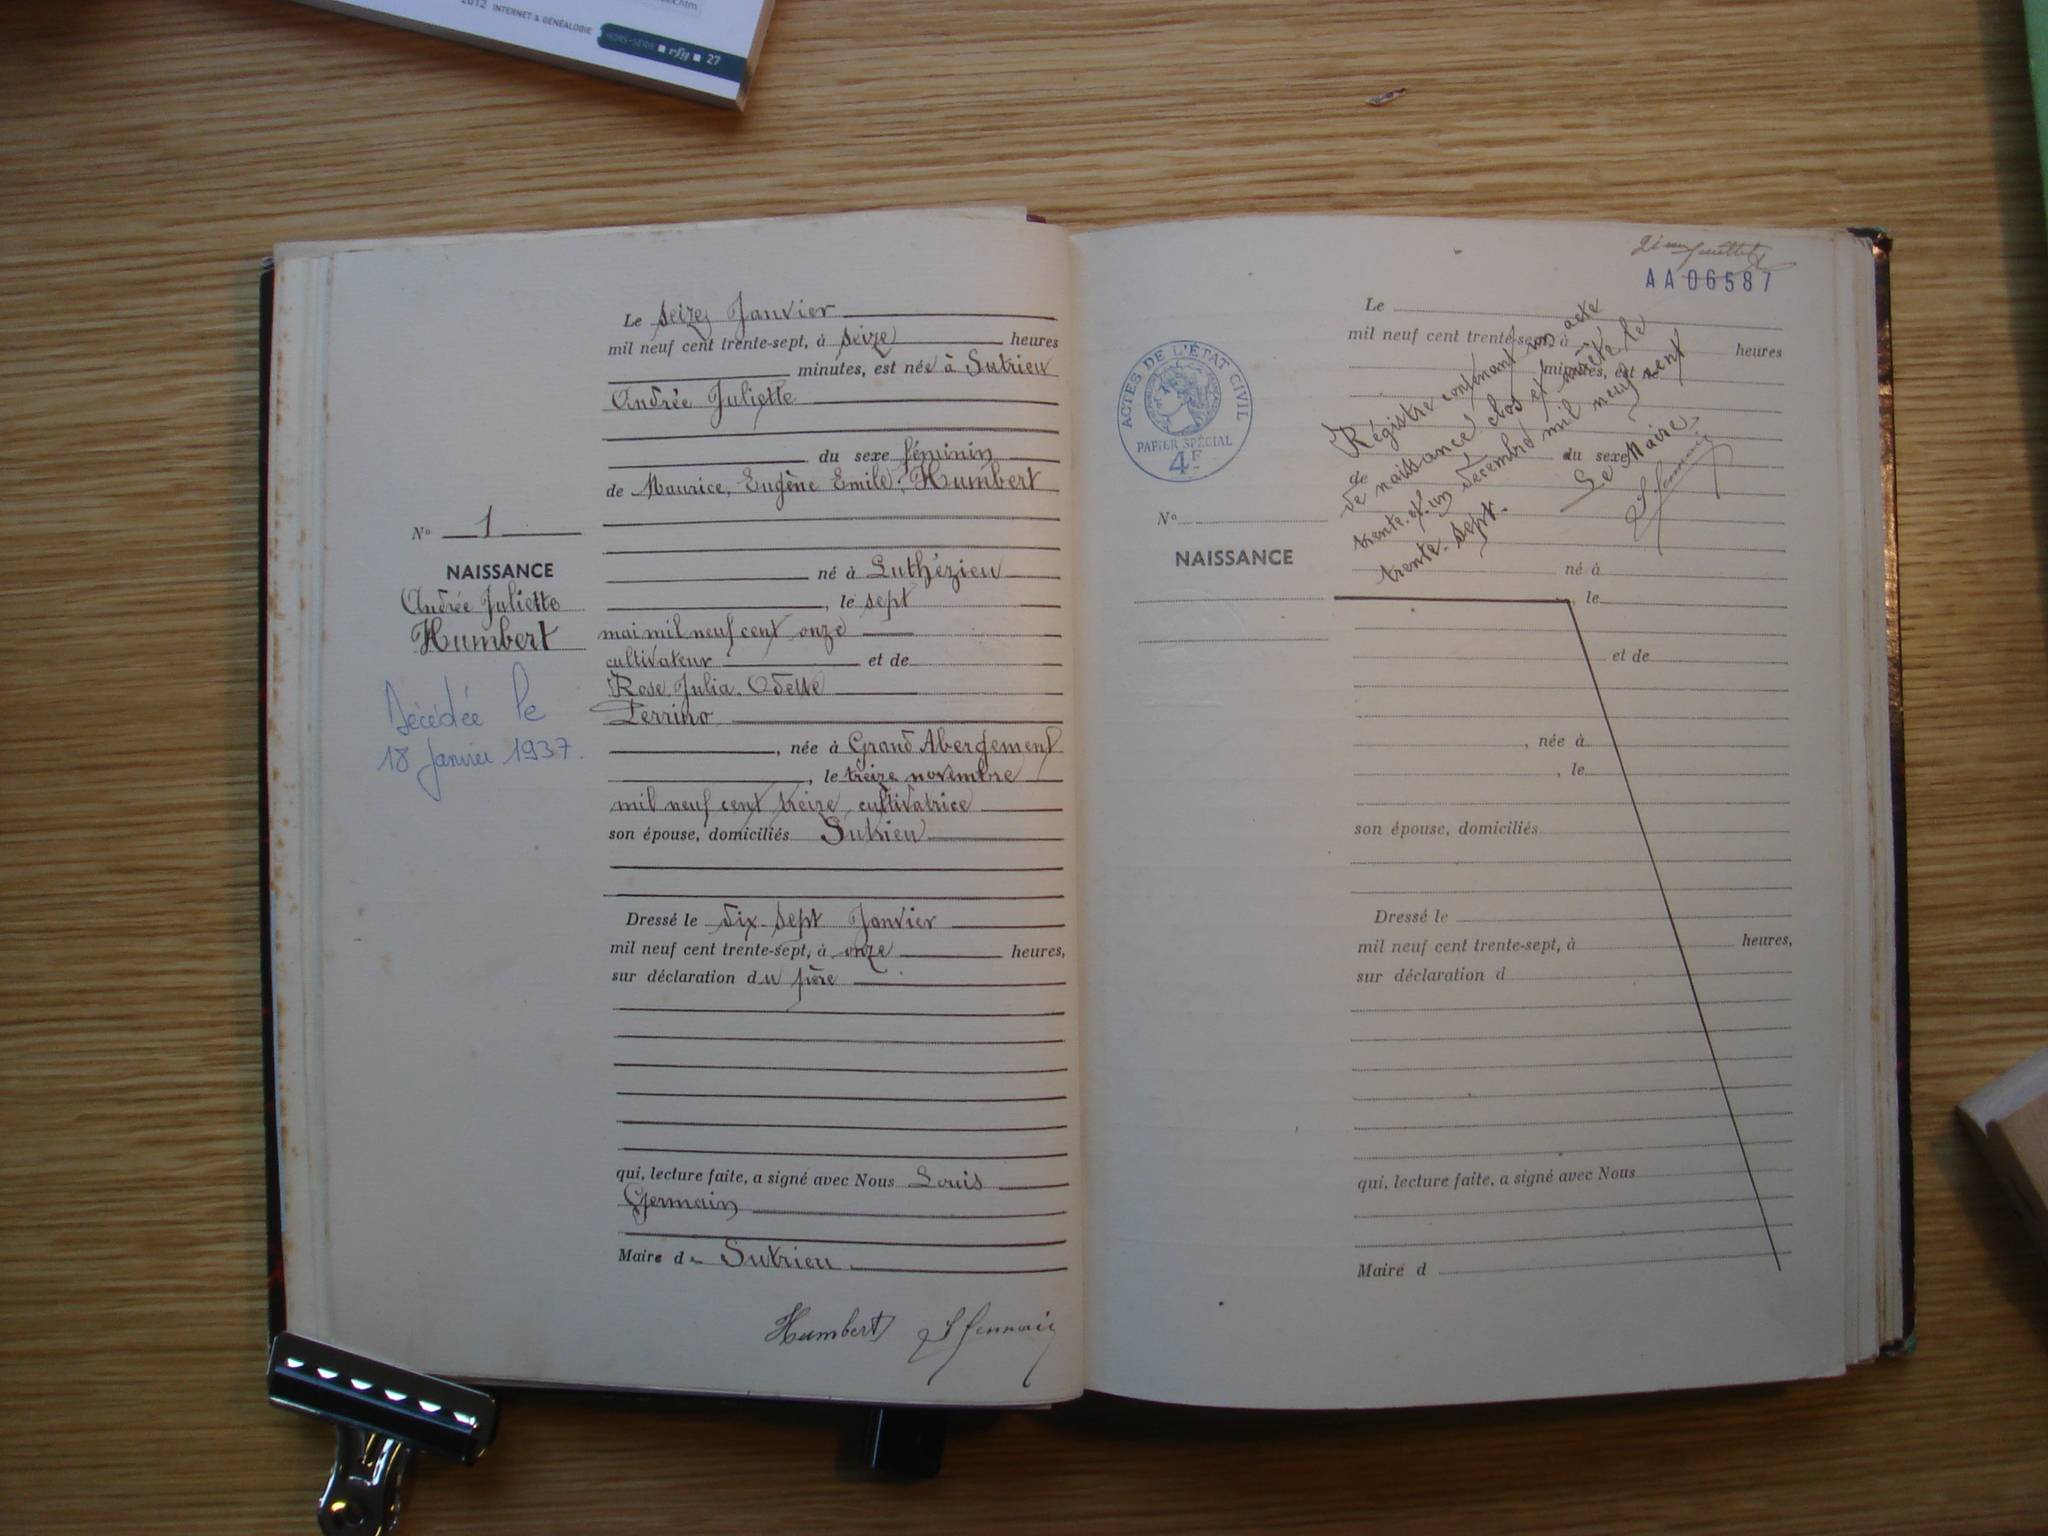 2012 INTERNET & GÉNÉALOGIE HORS-SÉRIE ■ rfg ■ 27
Le seize Janvier
mil neuf cent trente-sept, à seize heures
minutes, est née à Sutrieu
Andrée Juliette
du sexe féminin
de Maurice, Eugène Emile, Humbert
N° 1
NAISSANCE
Andrée Juliette
Humbert
Décédée le
18 Janvier 1937.
né à Luthézieu
, le sept
mai mil neuf cent onze
cultivateur et de
Rose Julia Odette
Perrino
, née à Grand Abergement
, le treize novembre
mil neuf cent treize, cultivatrice
son épouse, domiciliés Sutrieu
Dressé le dix-sept Janvier
mil neuf cent trente-sept, à onze heures,
sur déclaration du père
qui, lecture faite, a signé avec Nous Louis
Germain
Maire de Sutrieu
Humbert L Germain
2ième feuillet
AA06587
ACTES DE L'ÉTAT CIVIL
PAPIER SPÉCIAL
4F
Le
mil neuf cent trente-sept, à heures
minutes, est n
du sexe
Régistre contenant un acte
de
de naissance clos et arrêté le
trente-et-un décembre mil neuf cent
trente-sept.
Le Maire
L Germain
N°
NAISSANCE
né à
, le
et de
, née à
, le
son épouse, domiciliés
Dressé le
mil neuf cent trente-sept, à heures,
sur déclaration d
qui, lecture faite, a signé avec Nous
Maire d